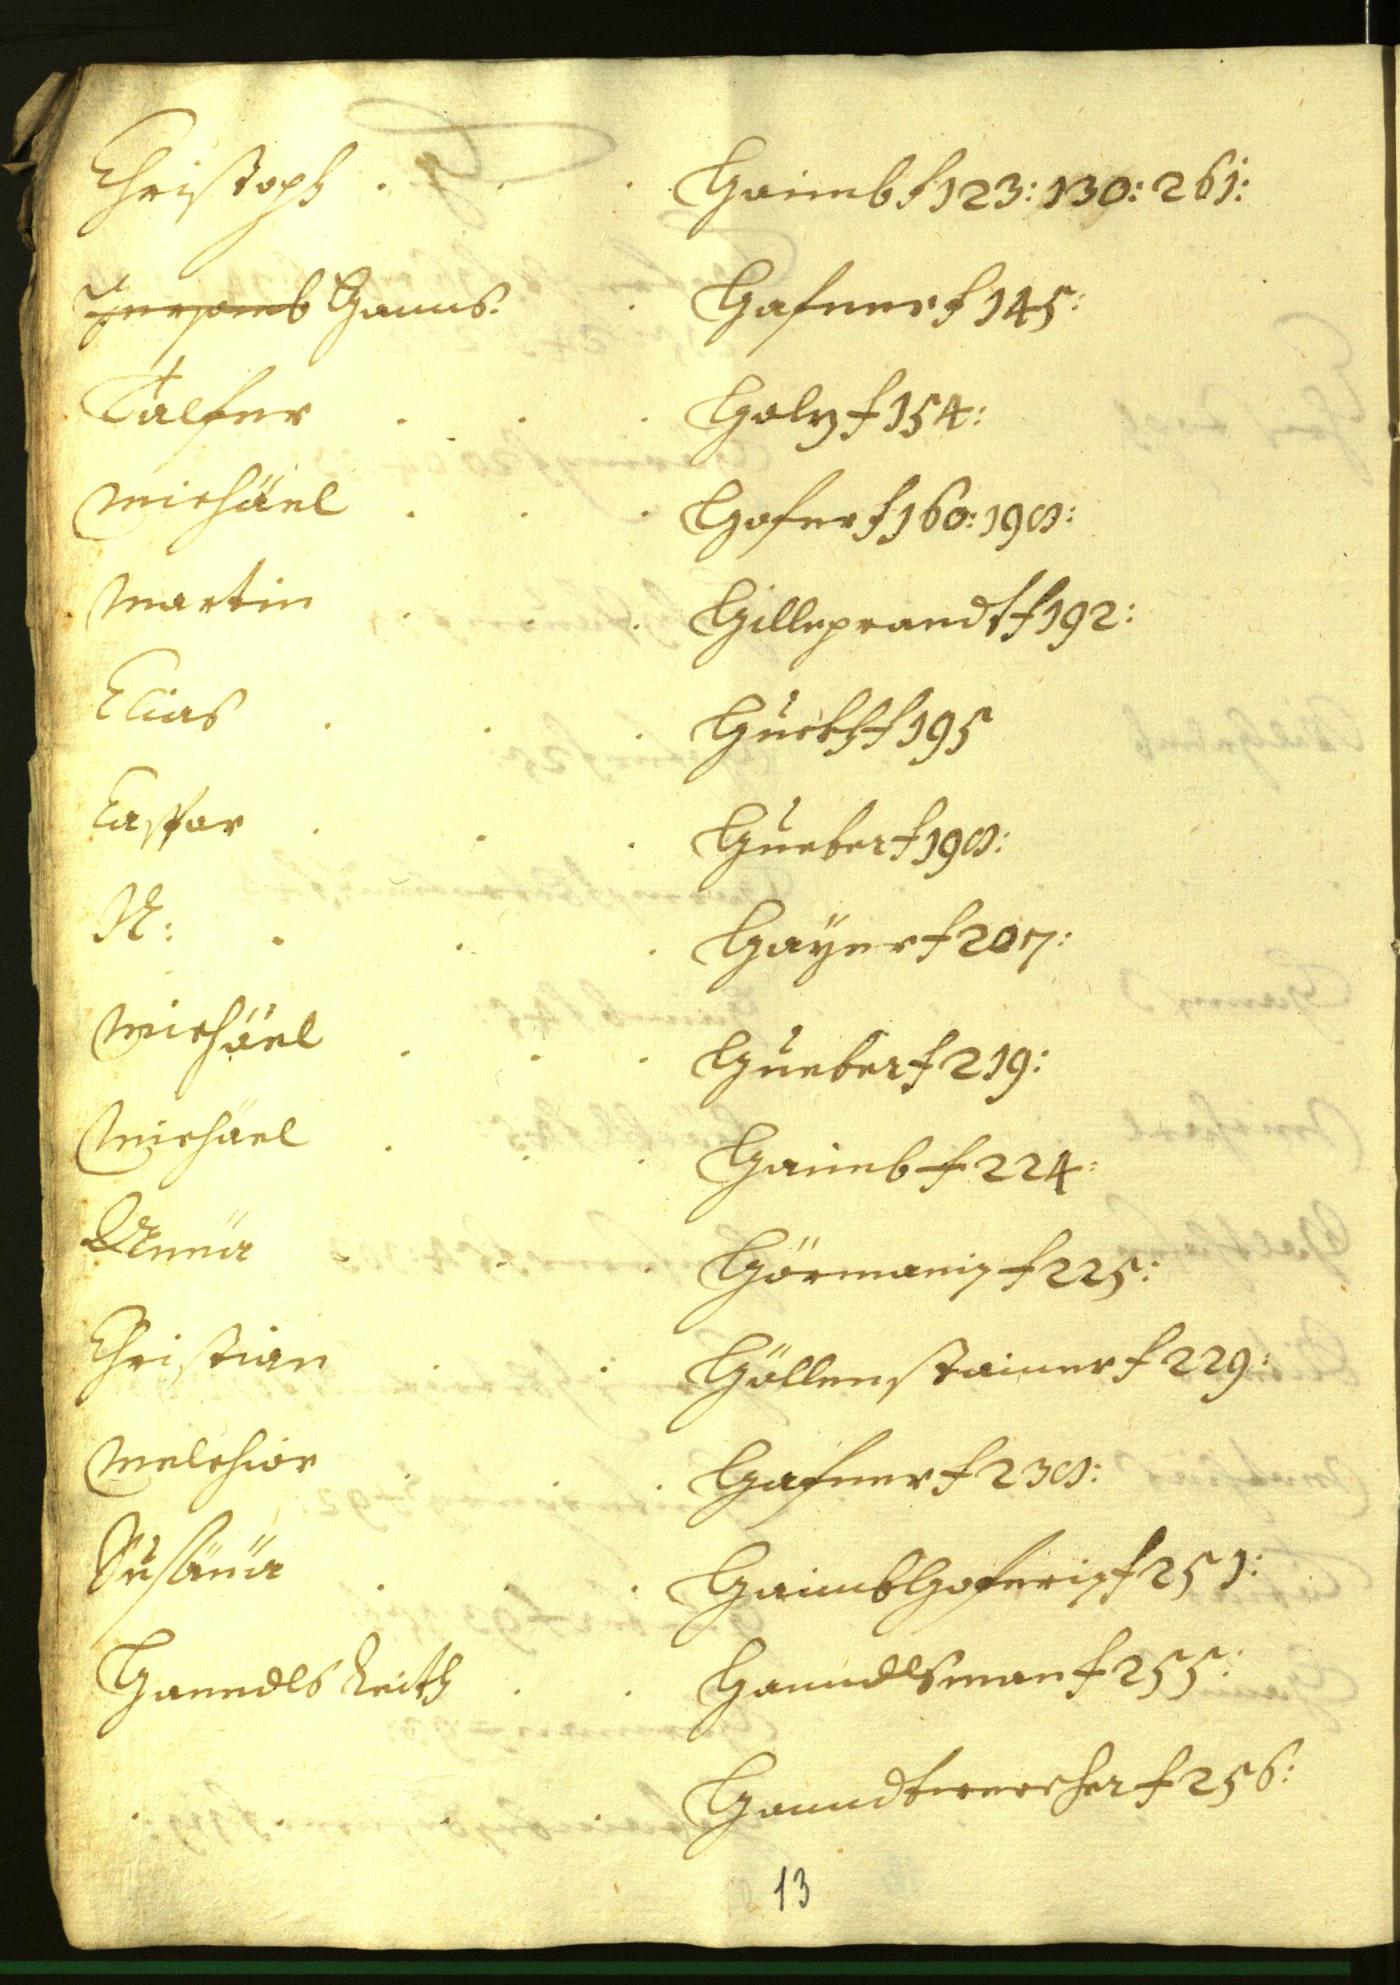 Christoph . . . Haimb f 123: 130: 261:
Hanns: . Hafner f 145:
Talfer . . . Holz f 154:
Michäel . . . Hofer f 160: 198:
Martin . . . Hilleprandt f 192:
Elias . . . Huekh f 195
Caspar . . . Hueber f 198:
N: . . . Hayer f 207:
Michäel . . . Hueber f 219:
Michäel . . . Haimb f 224:
Anna . . . Hörmanin f 225:
Christian . . Höllenstainer f 229:
Melchior . . . Hafner f 238:
Susanna . . Haimbhoferin f 251:
Hanndls Leith . . Hanndlsman f 255:
. . . . Hanndtwercher f 256:
13